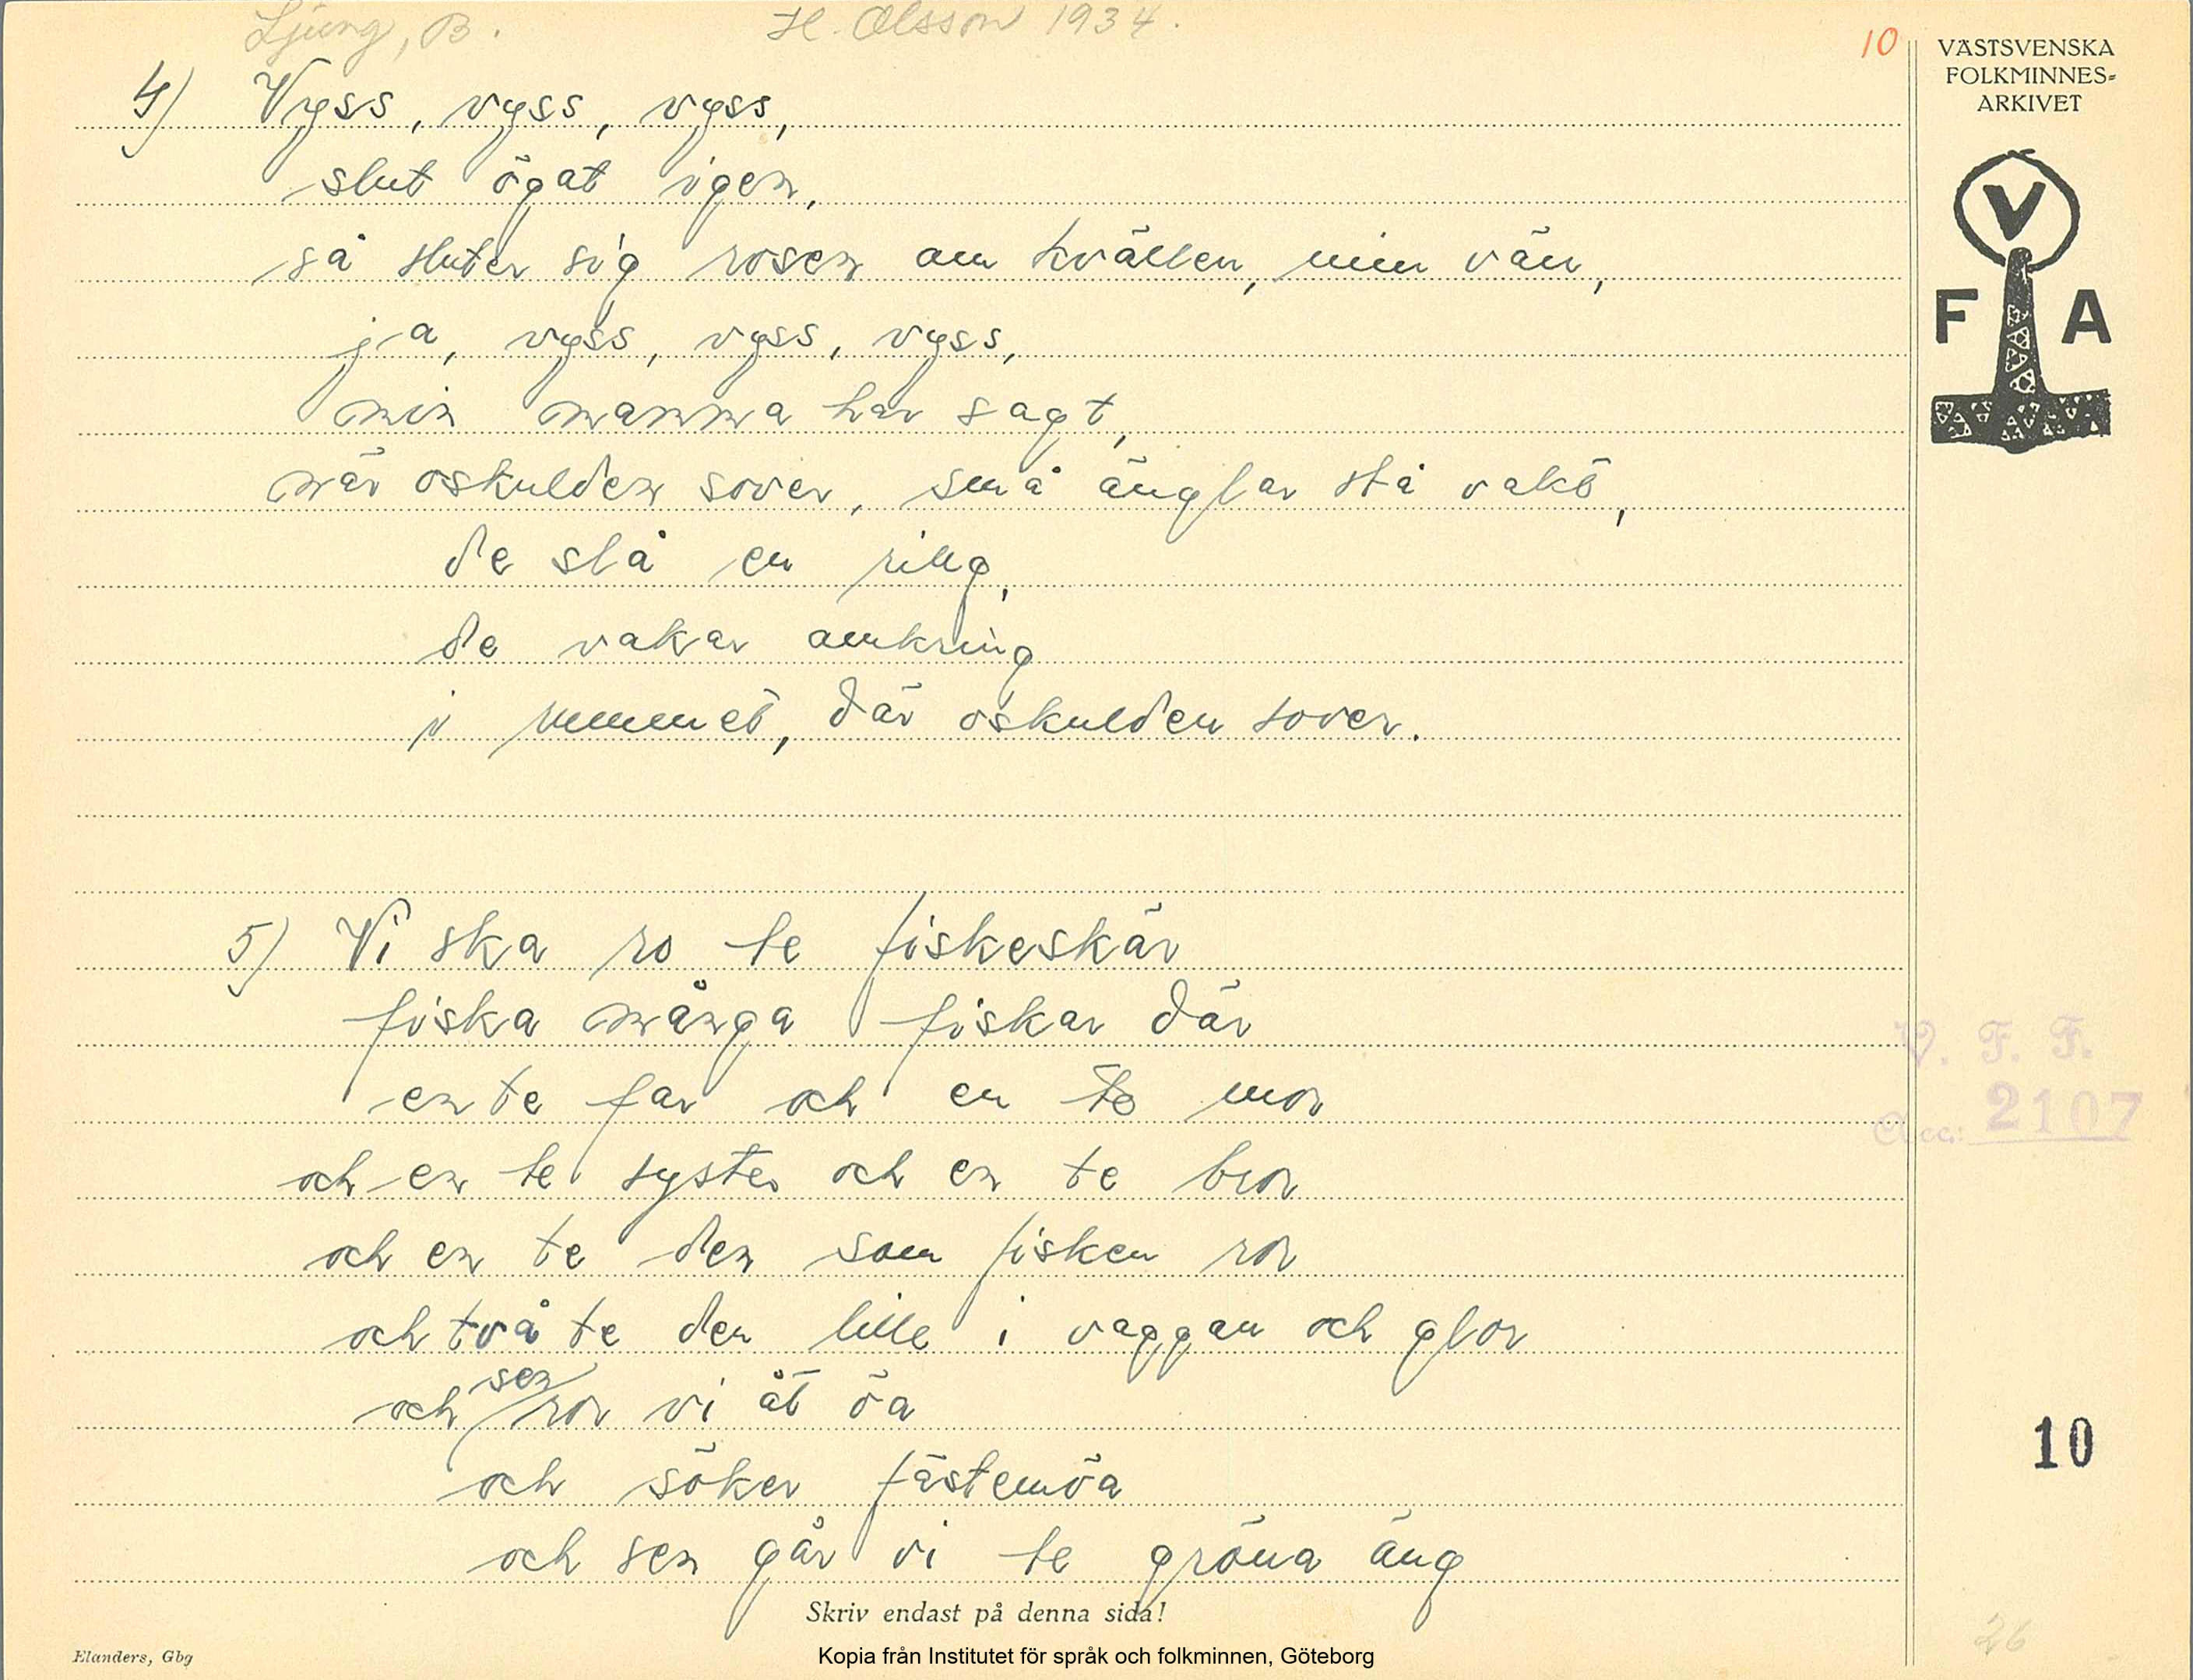 Ljung, B. H. Olsson 1934.
10
VÄSTSVENSKA
FOLKMINNES=
ARKIVET
V
F A
4) Vyss, vyss, vyss,
slut ögat igen,
så sluter sig rosen om kvällen, min vän,
ja, vyss, vyss, vyss,
min mamma har sagt,
när oskulden sover, små änglar stå vakt,
de slå en ring,
de vakar omkring
i rummet, där oskulden sover.
5) Vi ska ro te fiskeskär
fiska många fiskar där
en te far och en te mor
och en te syster och en te bror
och en te den som fisken ror
och två te den lille i vaggan och glor
och sen ror vi åt öa
och söker fästemöa
och sen går vi te gröna äng
V. F. F.
Acc: 2107
10
Skriv endast på denna sida!
26
Elanders, Gbg
Kopia från Institutet för språk och folkminnen, Göteborg